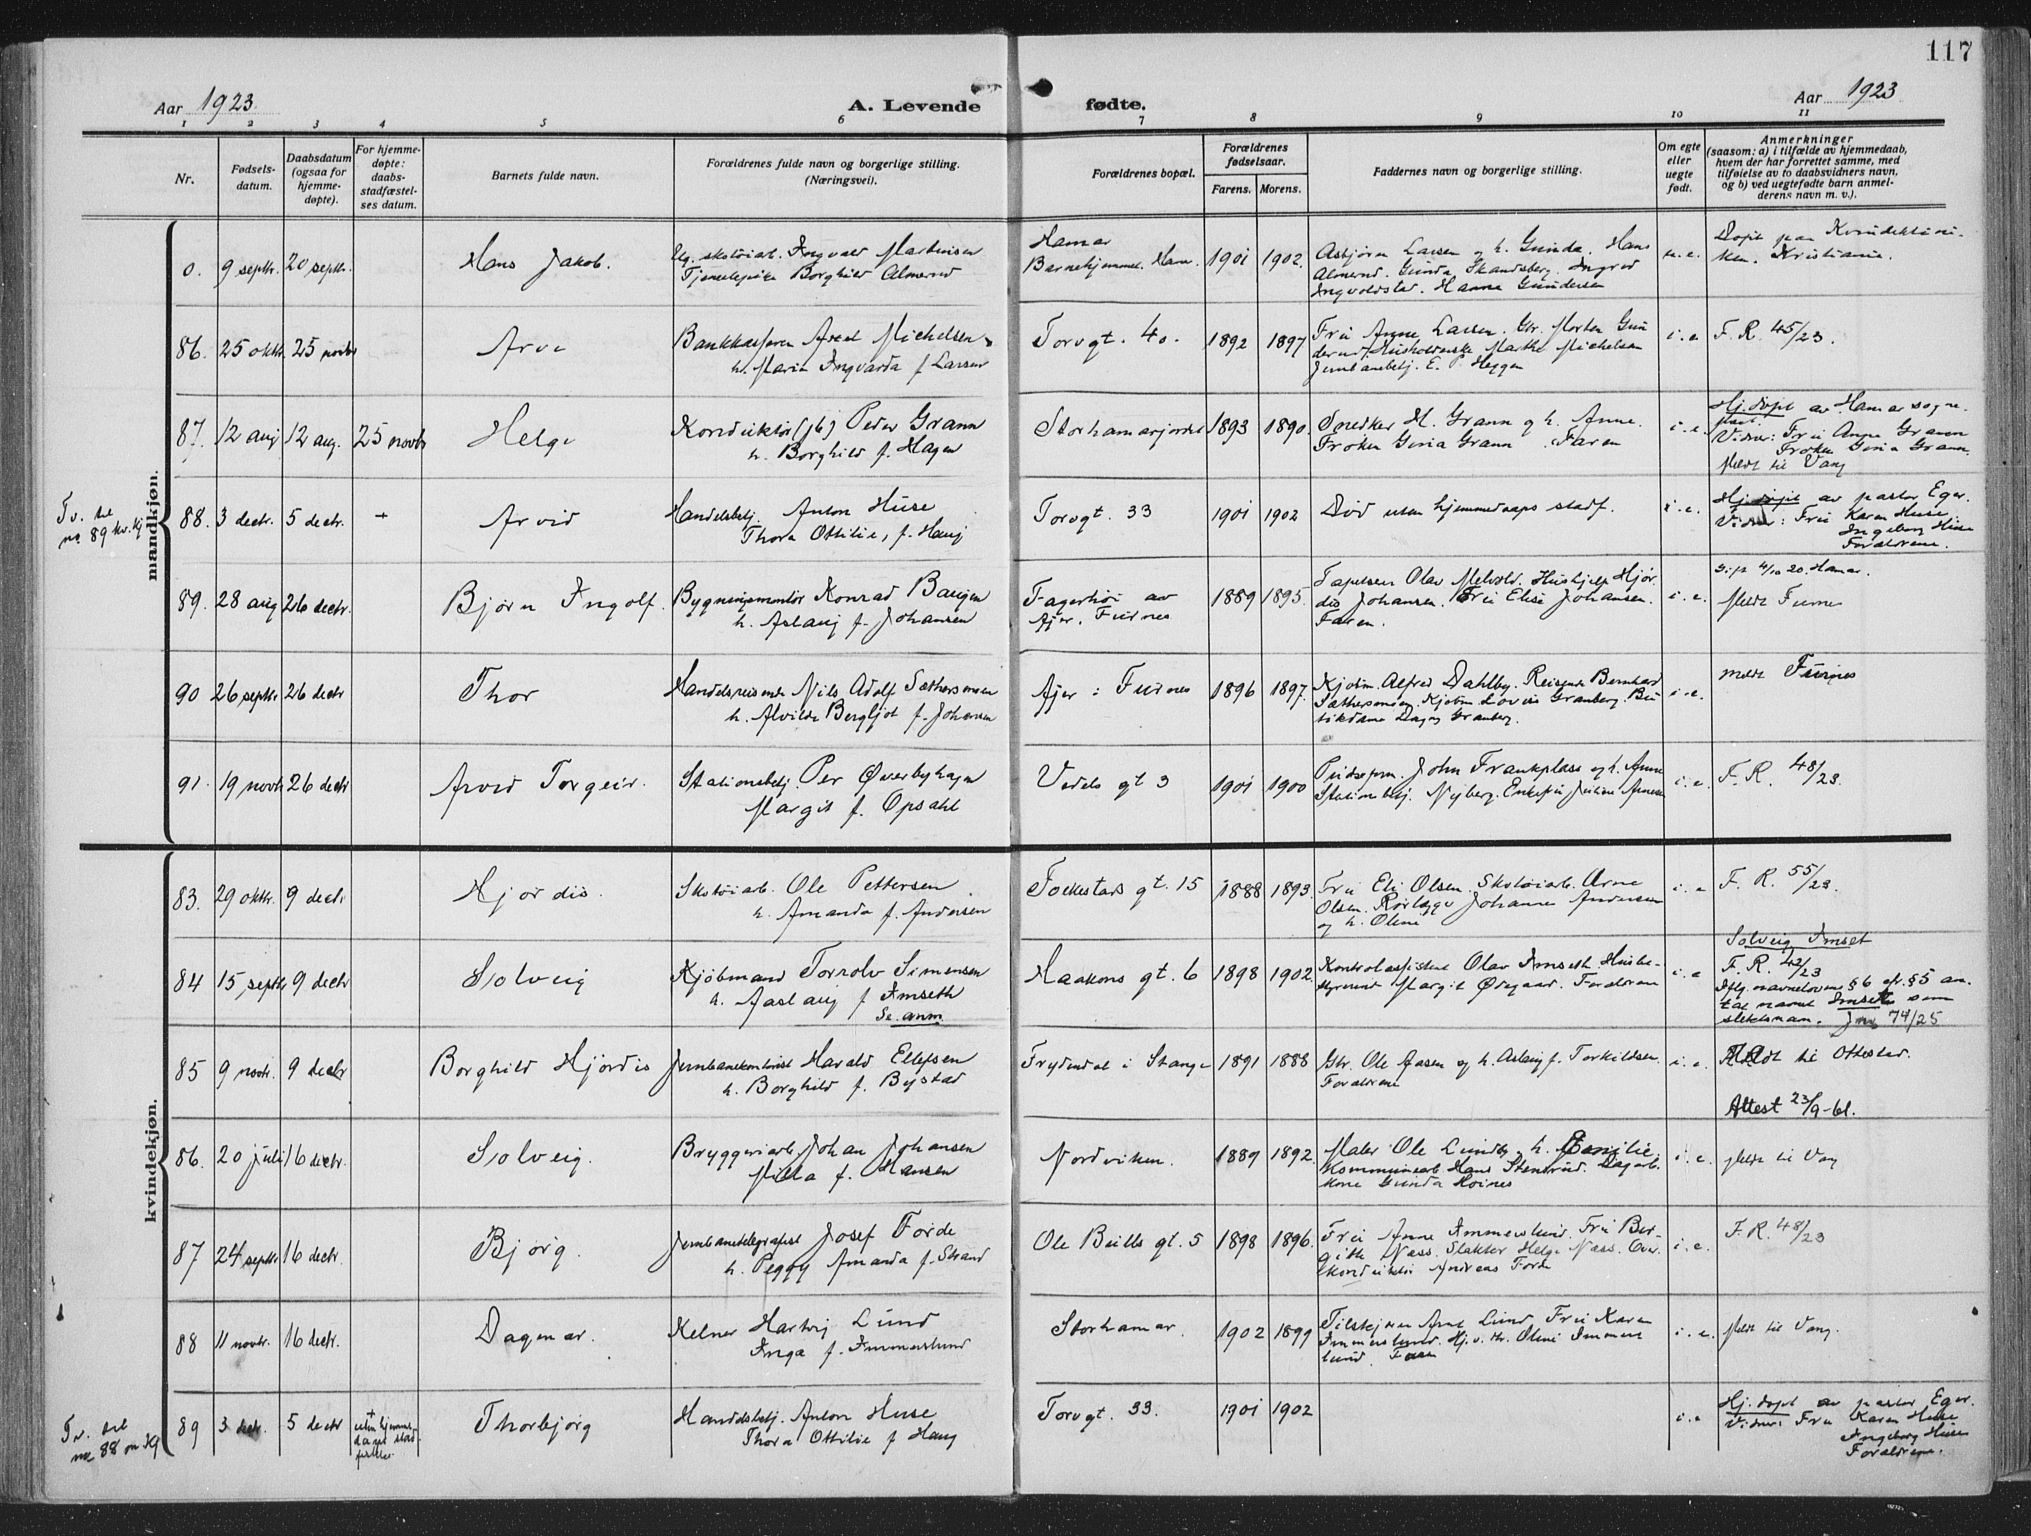 117
Aar 1923.
A. Levende fødte.
Aar 1923
1 2 3 4 5 6 7 8 9 10 11
Nr.
Fødsels-
datum.
Daabsdatum
(ogsaa for
hjemme-
døpte).
For hjemme-
døpte:
daabs-
stadfæstel-
ses datum.
Barnets fulde navn.
Forældrenes fulde navn og borgerlige stilling.
(Næringsvei).
Forældrenes bopæl.
Forældrenes
fødselsaar.
Farens. Morens.
Faddernes navn og borgerlige stilling.
Om egte
eller
uegte
født.
Anmerkninger
(saasom: a) i tilfælde av hjemmedaab,
hvem der har forrettet samme, med
tilføielse av to daabsvidners navn,
og b) ved uegtefødte barn anmel-
derens navn m. v.).
mandkjøn.
0. 9 septr. 20 septr. Hans Jakob.
Ug. skotøiarb. Ingvald Martinsen
Tjenestepike Borghild Almerud
Hamar
Barnehjemmet. Hamar
1901 1902.
Asbjørn Larsen og h. Gunda. Hans
Almerud. Gunda Skandsberg. Ingrid
Ingvoldstad. Hanne Gundersen
u.e.
Døpt paa Kvindeklini-
ken. Kristiania.
86. 25 oktr. 25 novbr Arve
Bankkasserer Axel Michelsen
h. Maria Ingvarda f. Larsen
Torvgt. 40. 1892 1897
Fru Anne Larsen. Gbr. Morten Gun
derud. Husholderske Marthe Michelsen
Jernbanebetj. E. P. Heggen
i.e F. R. 45/23.
87. 12 aug 12 aug. 25 novbr Helge
Konduktør (jb) Peder Grann
h. Borghild f. Hagen
Storhamarjordet 1893 1890.
Snedker H. Grann og h. Anne.
Frøken Gina Grann. Faren
i.e.
Hj. døpt av Hamar sogne-
prest.
Vidner: Fru Anne Grann
Frøken Gina Grann.
Meldt til Vang
Tv. til
nr 89 kv.kj
88. 3 decbr. 5 decbr. + Arvid
Handelsbetj. Anton Huse
Thora Ottilie, f. Haug
Torvgt. 33 1901 1902
Død uten hjemmedaaps stadf.
i.e.
Hj. døpt av pastor Eger.
Vidner: Fru Karen Huse
Ingeborg Huse
Forældrene.
89. 28 aug 26 decbr. Bjørn Ingolf.
Bygningsmontør Konrad Baugen
h. Aslaug f. Johansen
Fagerhøi av
Ajer. Furnes
1889 1895.
Tapetserer Olav Melvold. Hushjelp Hjør-
dis Johansen. Fru Elise Johansen.
Faren.
i.e.
Gift 4/10 20. Hamar.
Meldt Furnes
90 26 septr 26 decbr Thor
Handelsreisende Nils Adolf Sæthersmoen
h. Alvilde Bergljot f. Johansen
Ajer i Furnes 1896 1897.
Kjøbm. Alfred Dahlby. Reisende Bernhard
Sæthersmoen. Kjøbm Lovise Granberg. Bu
tikdame Dagny Granberg.
i.e. meldt Furnes
91. 19 novbr 26 decbr Arvid Torgeir.
Stationsbetj. Per Øverbyhagen
Margit f. Opsahl
Vedels gt 3 1901 1900
Pudseform. John Frankplass og h. Anne
Stationsbetj. Nyberg. Enkefru Juliane Arnesen
i.e. F. R. 48/23.
kvindekjøn.
83. 29 oktr. 9 decbr Hjørdis.
Skotøiarb. Ole Pettersen
h. Amanda f. Andersen
Folkestads gt. 15 1888 1893.
Fru Eli Olsen. Skotøiarb. Arne
Olsen. Rørlægger Johannes Andersen
og h. Oline
i.e F. R. 55/23.
84 15 septr 9 decbr Solveig
Kjøbmand Torrolv Simensen
h. Aaslaug f Imseth
Se anm.
Haakons gt. 6 1898 1902.
Kontrolassistent Olav Imseth. Husbe-
styrerinde Margit Ødegaard. Forældrene
i.e
Solveig Imset
F. R. 42/23
Iflg. navneloven § 6 cfr. § 5 an-
tat navnet Imset som
slektsnavn. Jnr 74/25
85 9 novbr. 9 decbr Borghild Hjørdis
Jernbanekontorist Harald Ellefsen
h. Borghild f. Bystad
Frydendal i Stange 1891 1888
Gbr. Ole Aasen og h. Aslaug f. Torkildsen.
Forældrene
i.e. Meldt til Ottestad.
Attest 23/9-61.
86. 20 juli 16 decbr. Solveig.
Bryggeriarb. Johan Johansen
Milla f. Hansen
Nordviken. 1889 1892.
Maler Ole Lundby og h. Emilie.
Kommunearb Hans Stensrud. Dagarb.
kone Gunda Høines
i.e. Meldt til Vang
87 24 septr 16 decbr Bjørg.
Jernbanetelegrafist Josef Forde
h. Peggy Amanda f. Strand
Ole Bulls gt. 5 1898 1896.
Fru Anne Immerslund. Fru Bir-
gitte Næss. Slakter Helge Næss. Over-
konduktør Andreas Forde
i.e. F. R. 48/23
88 11 novbr. 16 decbr. Dagmar.
Kelner Hartvig Lund
Inga f. Immerslund
Storhamar. 1902 1899
Tilskjærer Arne Lund Fru Karen
Immerslund. Oline Immers
lund. Faren
i.e. Meldt til Vang.
Tv. til
nr 88 m Kj
89 3 decbr. 5 decbr
+
uten hjemme
daaps stad-
festelse
Thorbjørg
Handelsbetj. Anton Huse
Thora Ottilie f Haug
Torvgt. 33. 1901 1902
i.e
Hj. døpt av pastor Eger.
Vidner: Fru Karen Huse
Ingeborg Huse
Forældrene.